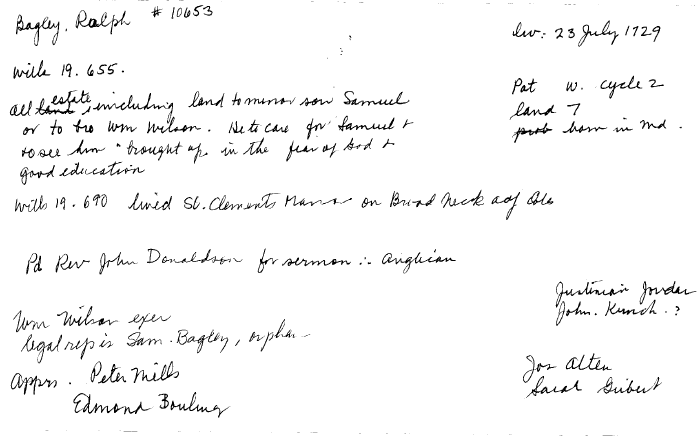 Bagley, Ralph # 10653
inv: 23 July 1729
Wills 19. 655.
Pat W. cycle 2
land 7
prob born in Md.
all land estate including land to minor son Samuel
or to bro Wm Wilson. He to care for Samuel &
to see him "brought up in the fear of God &
good education
Wills 19. 690 lived St. Clements Manor on Broad Neck adj
Pd Rev John Donaldson for sermon ∴ Anglican
Justinian Jordan
John
Wm Wilson exer
legal rep is Sam. Bagley, orphan
Apprs. Peter Mills
Edmond Bouling
Jos Alten
Sarah Guibert